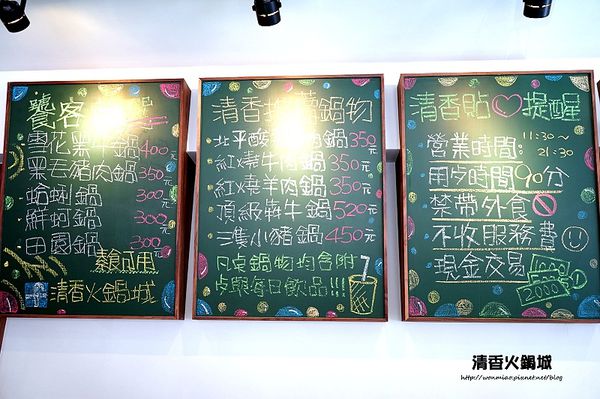 饕客
雪花黑牛鍋 400元
黑毛豬肉鍋 350元
蛤蜊鍋 300元
鮮蚵鍋 300元
田園鍋 300元
素食可用
清香火鍋城
清香推薦鍋物
北平酸 鍋 350元
紅燒牛肉鍋 350元
紅燒羊肉鍋 350元
頂級犇牛鍋 520元
三隻小豬鍋 450元
凡桌鍋物均含附
點與每日飲品!!!
清香貼♡提醒
營業時間: 11:30~
21:30
用夕時間90分
禁帶外食
不收服務費
現金交易
清香火鍋城
http://wonmiao.pixnet.net/blog